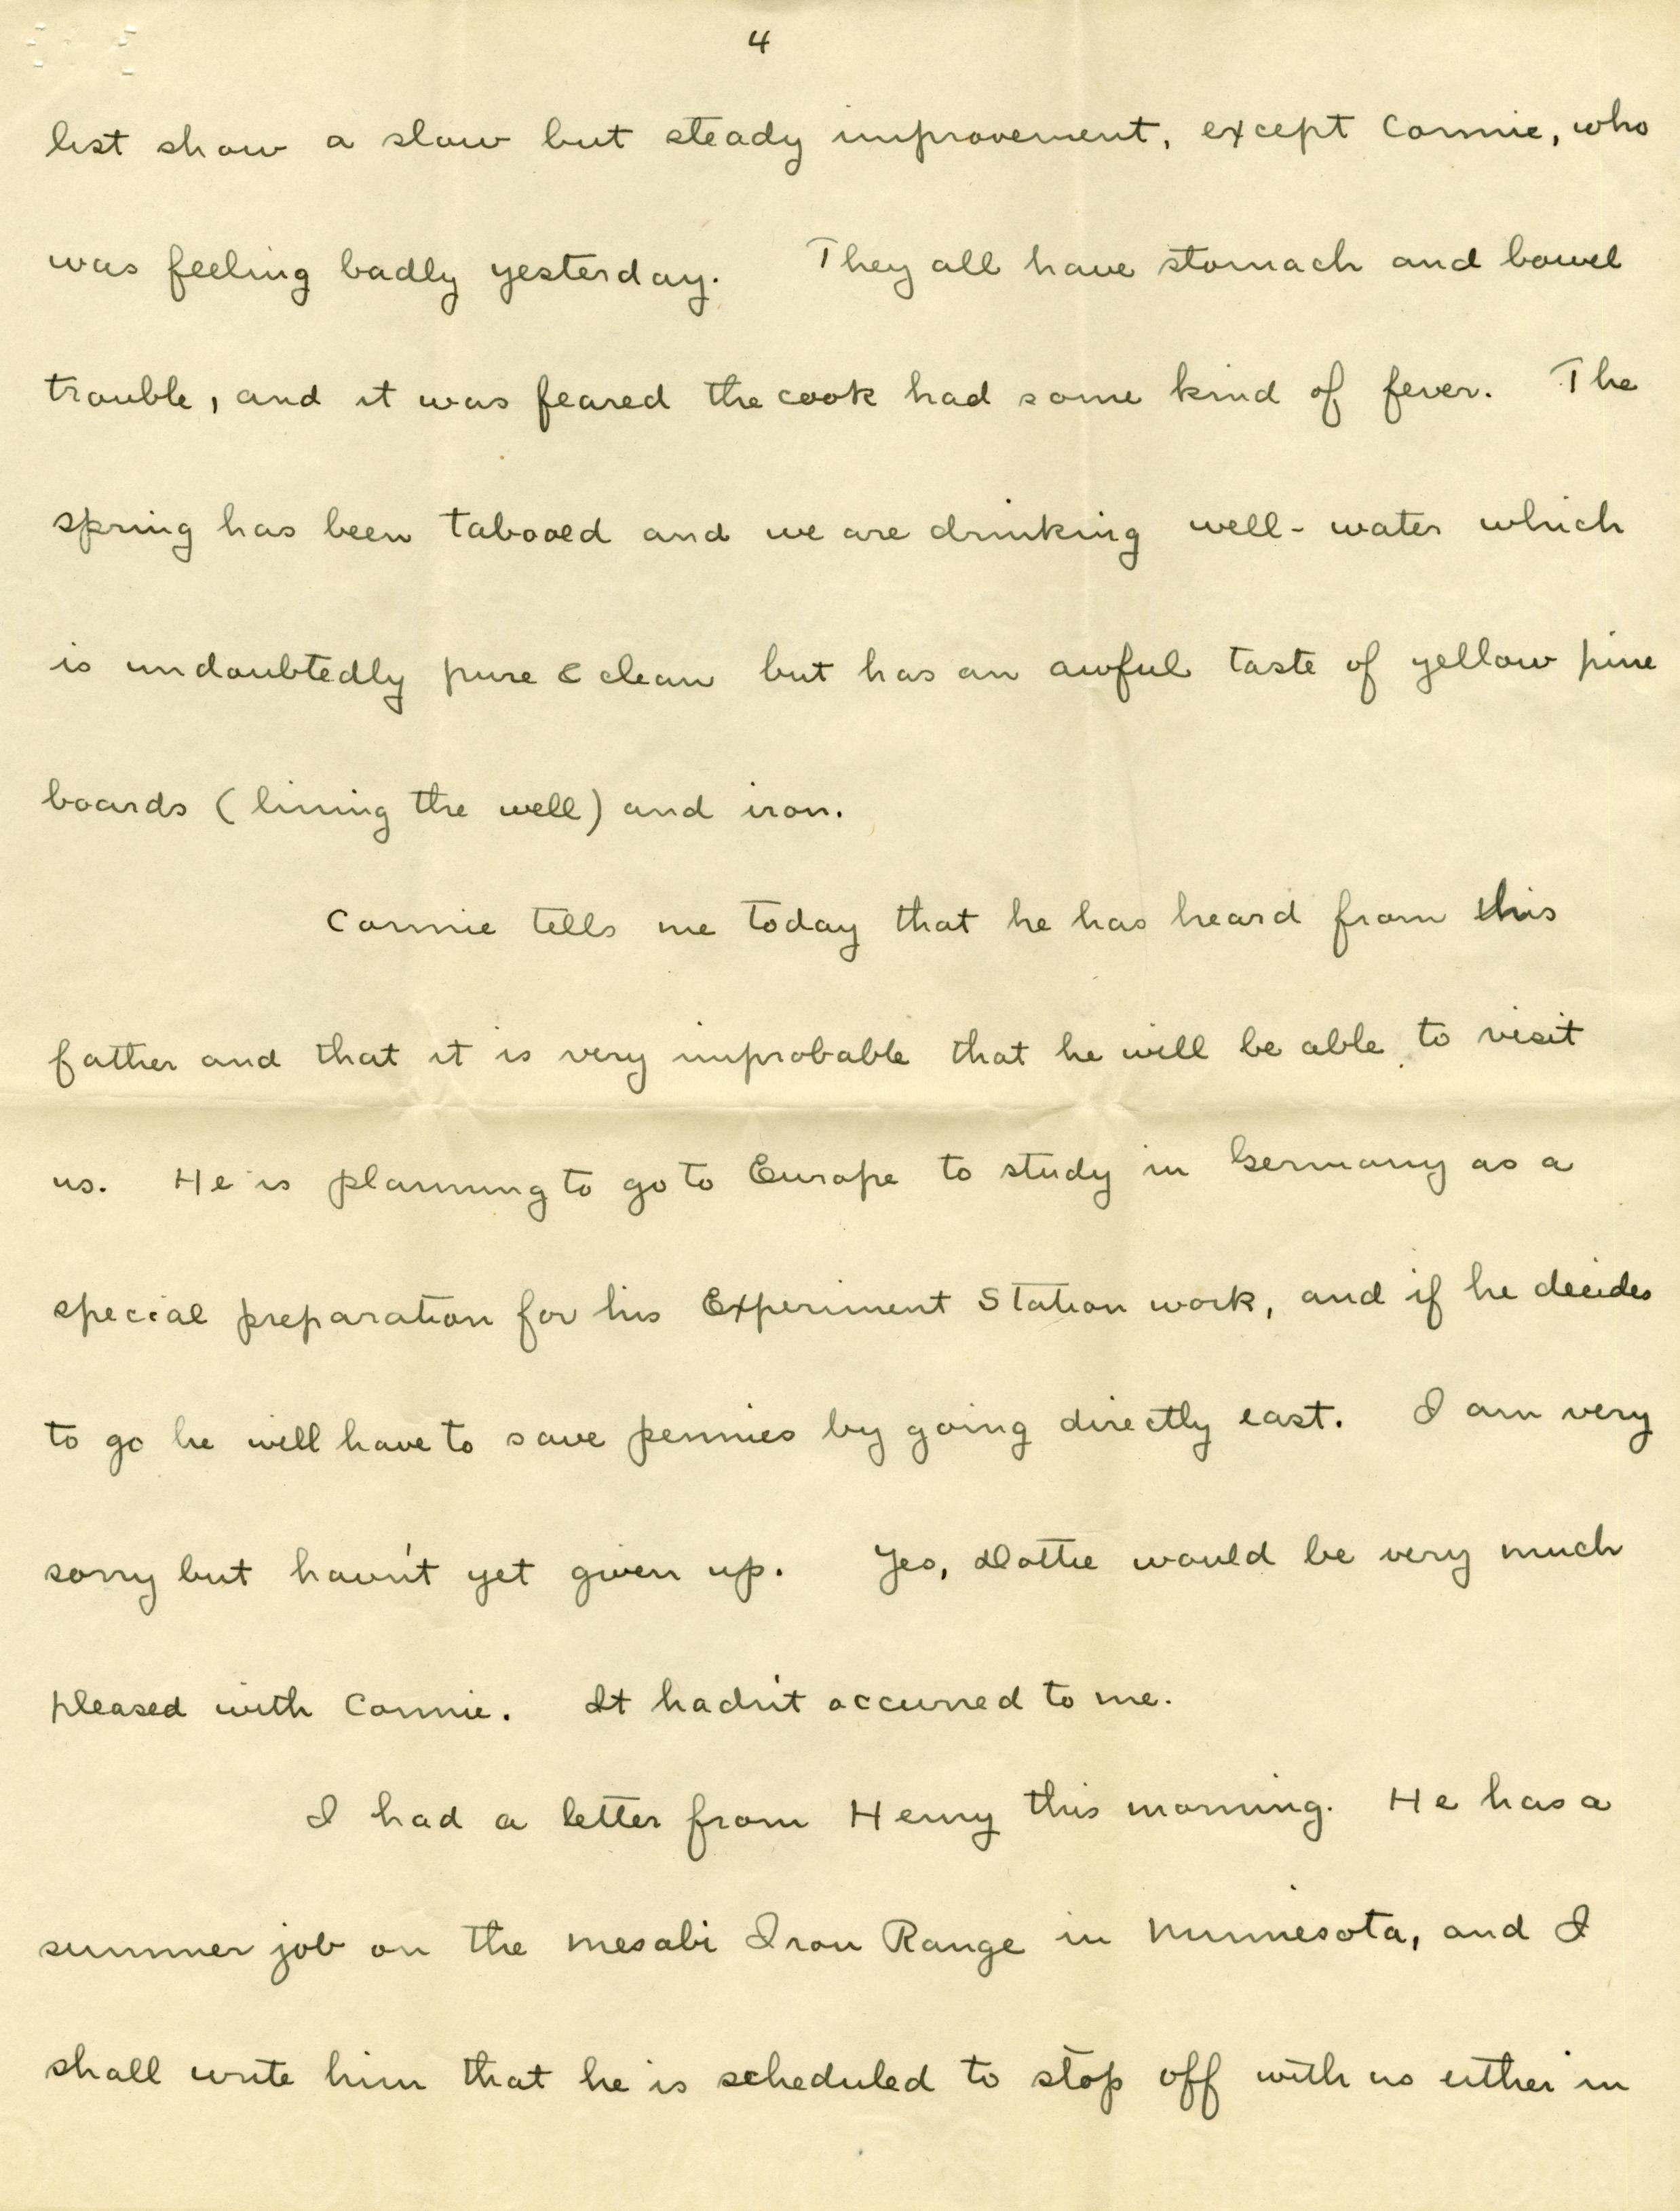 4
list show a slow but steady improvement, except Connie, who
was feeling badly yesterday. They all have stomach and bowel
trouble, and it was feared the cook had some kind of fever. The
spring has been tabooed and we are drinking well-water which
is undoubtedly pure & clean but has an awful taste of yellow pine
boards (lining the well) and iron.
Connie tells me today that he has heard from this
father and that it is very improbable that he will be able to visit
us. He is planning to go to Europe to study in Germany as a
special preparation for his Experiment Station work, and if he decides
to go he will have to save pennies by going directly east. I am very
sorry but havn't yet given up. Yes, Dottie would be very much
pleased with Connie. It hadn't occurred to me.
I had a letter from Henry this morning. He has a
summer job on the Mesabi Iron Range in Minnesota, and I
shall write him that he is scheduled to stop off with us either in